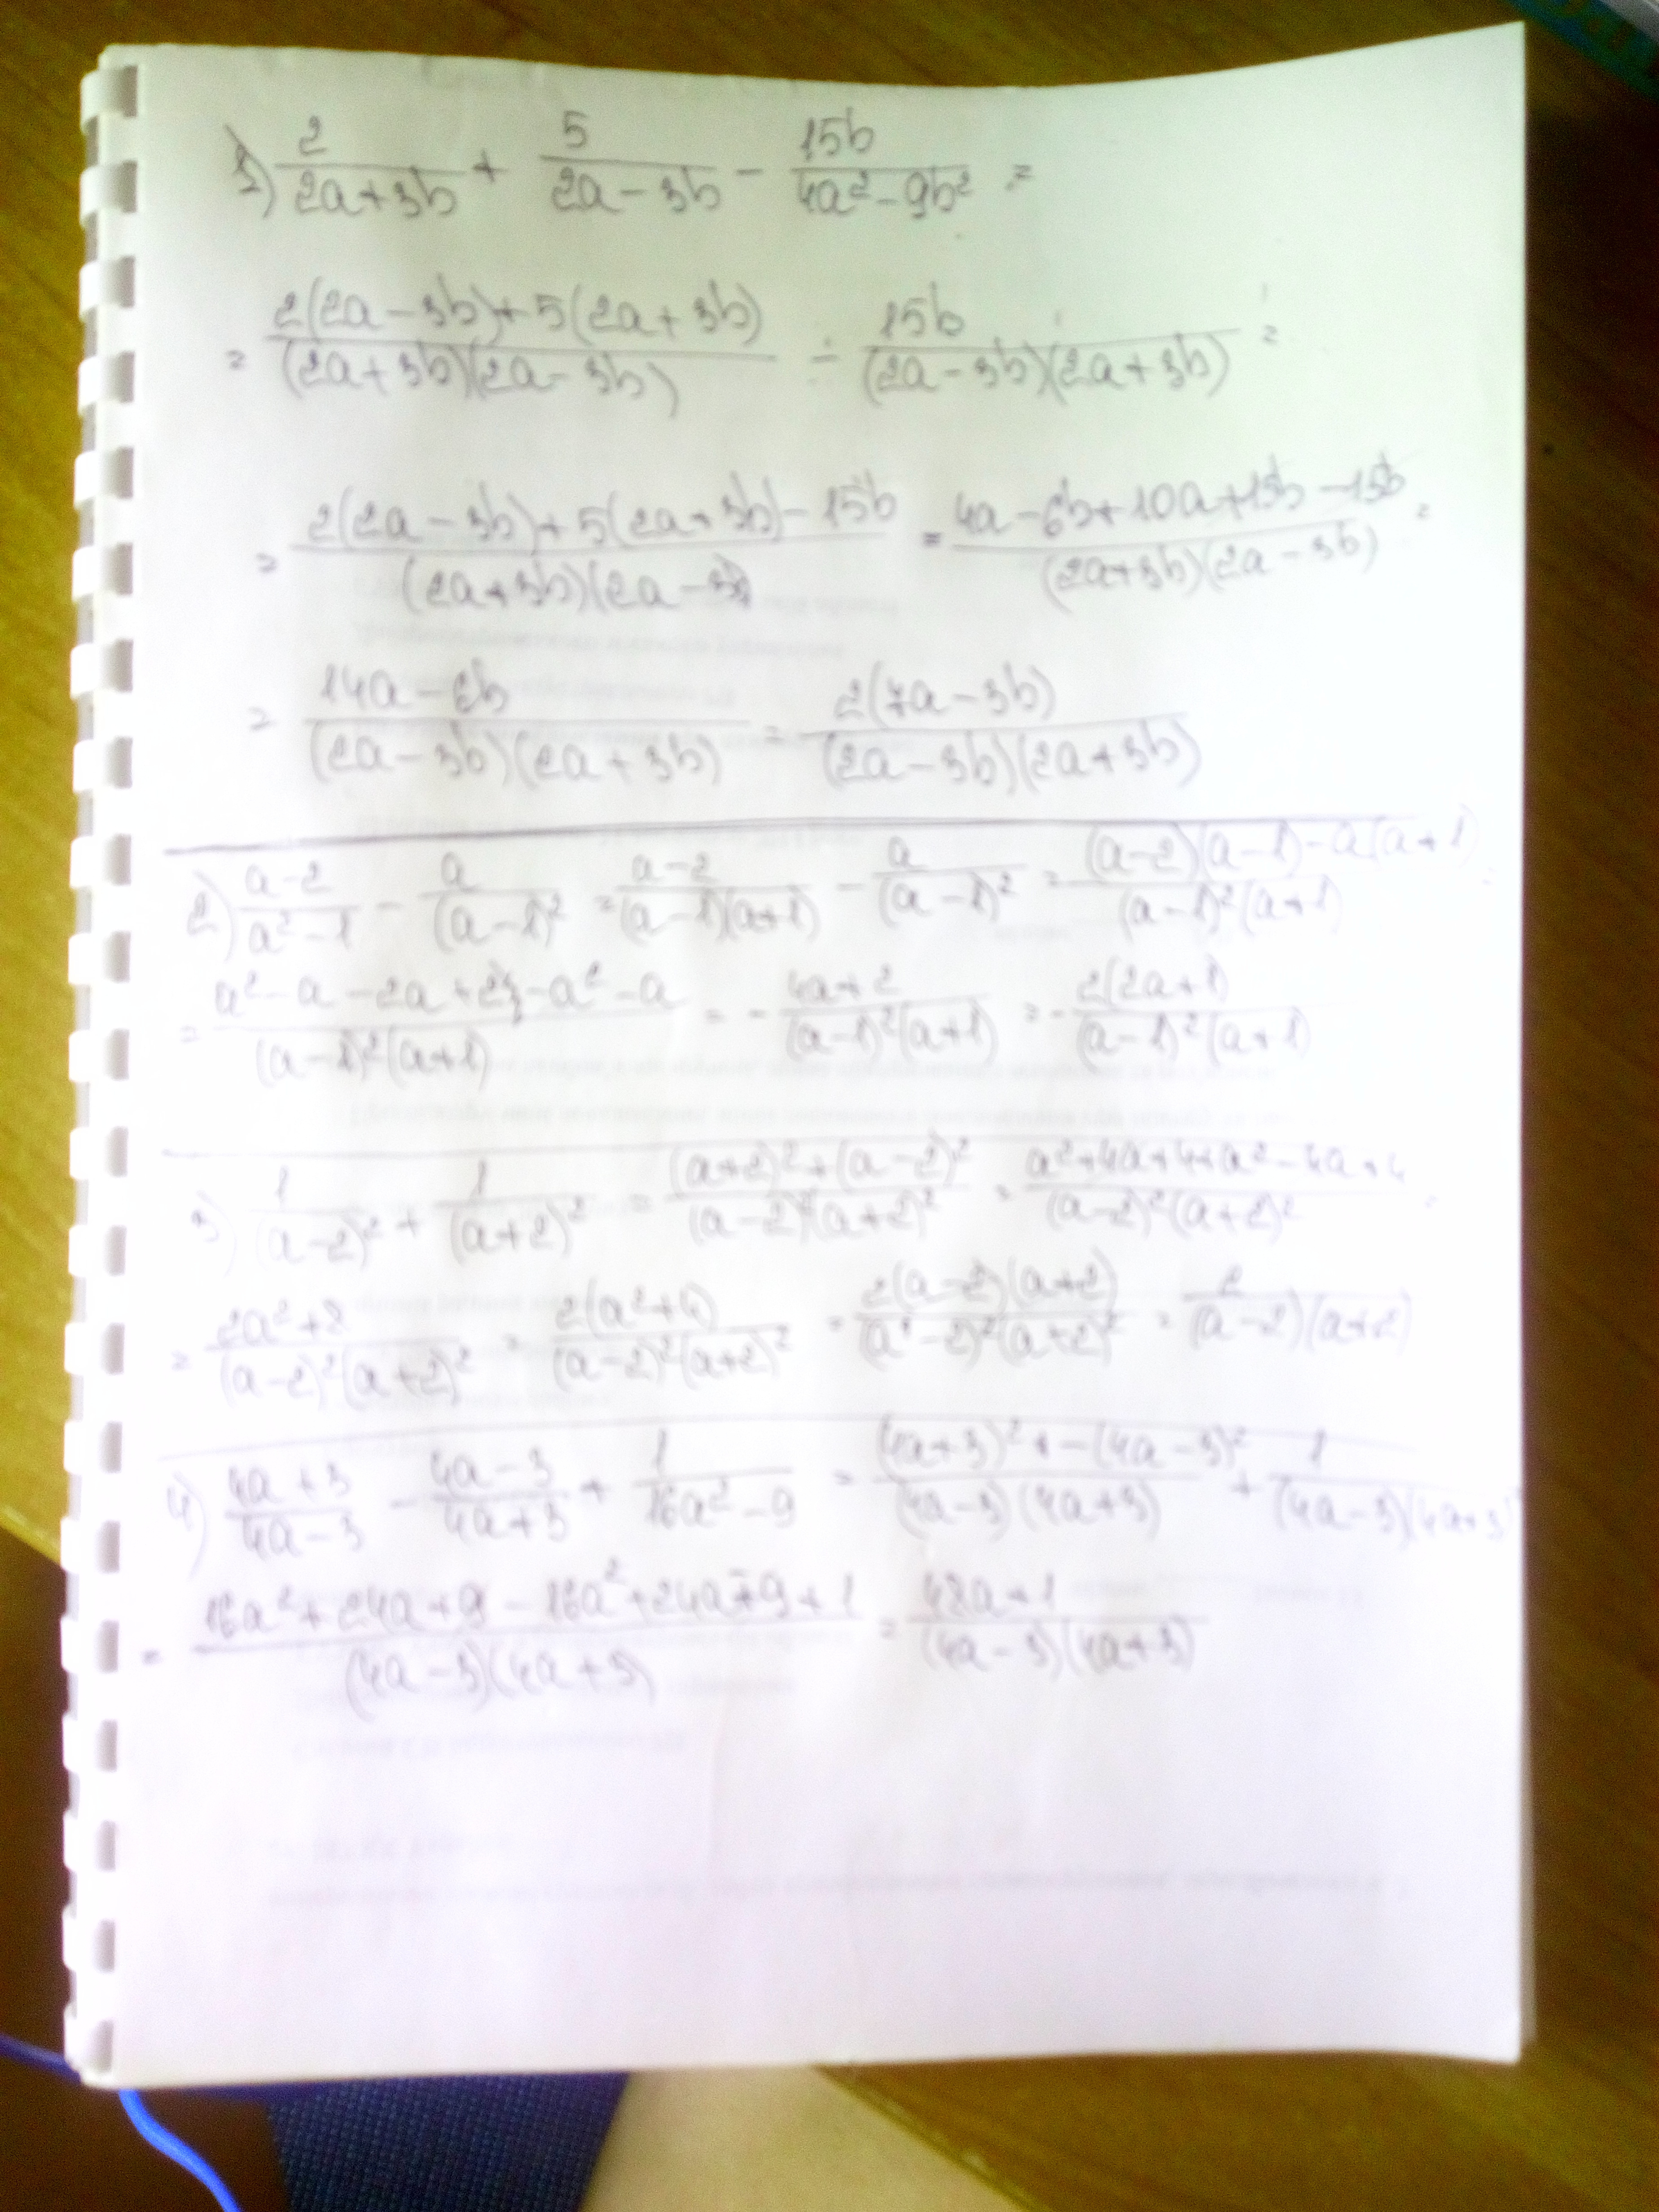 1) 2/(2a+3b) + 5/(2a-3b) - 15b/(4a²-9b²) =
= (2(2a-3b)+5(2a+3b))/((2a+3b)(2a-3b)) - 15b/((2a-3b)(2a+3b)) =
= (2(2a-3b)+5(2a+3b)-15b)/((2a+3b)(2a-3b)) = (4a-6b+10a+15b-15b)/((2a+3b)(2a-3b)) =
= (14a-6b)/((2a-3b)(2a+3b)) = 2(7a-3b)/((2a-3b)(2a+3b))
2) (a-2)/(a²-1) - a/(a-1)² = (a-2)/((a-1)(a+1)) - a/(a-1)² = ((a-2)(a-1)-a(a+1))/((a-1)²(a+1)) =
= (a²-a-2a+2-a²-a)/((a-1)²(a+1)) = - (4a+2)/((a-1)²(a+1)) = - 2(2a+1)/((a-1)²(a+1))
3) 1/(a-2)² + 1/(a+2)² = ((a+2)²+(a-2)²)/((a-2)²(a+2)²) = (a²+4a+4+a²-4a+4)/((a-2)²(a+2)²) =
= (2a²+8)/((a-2)²(a+2)²) = 2(a²+4)/((a-2)²(a+2)²) = 2(a-2)(a+2)/((a-2)²(a+2)²) = 2/((a-2)(a+2))
4) (4a+3)/(4a-3) - (4a-3)/(4a+3) + 1/(16a²-9) = ((4a+3)²-(4a-3)²)/((4a-3)(4a+3)) + 1/((4a-3)(4a+3))
= (16a²+24a+9-16a²+24a-9+1)/((4a-3)(4a+3)) = (48a+1)/((4a-3)(4a+3))